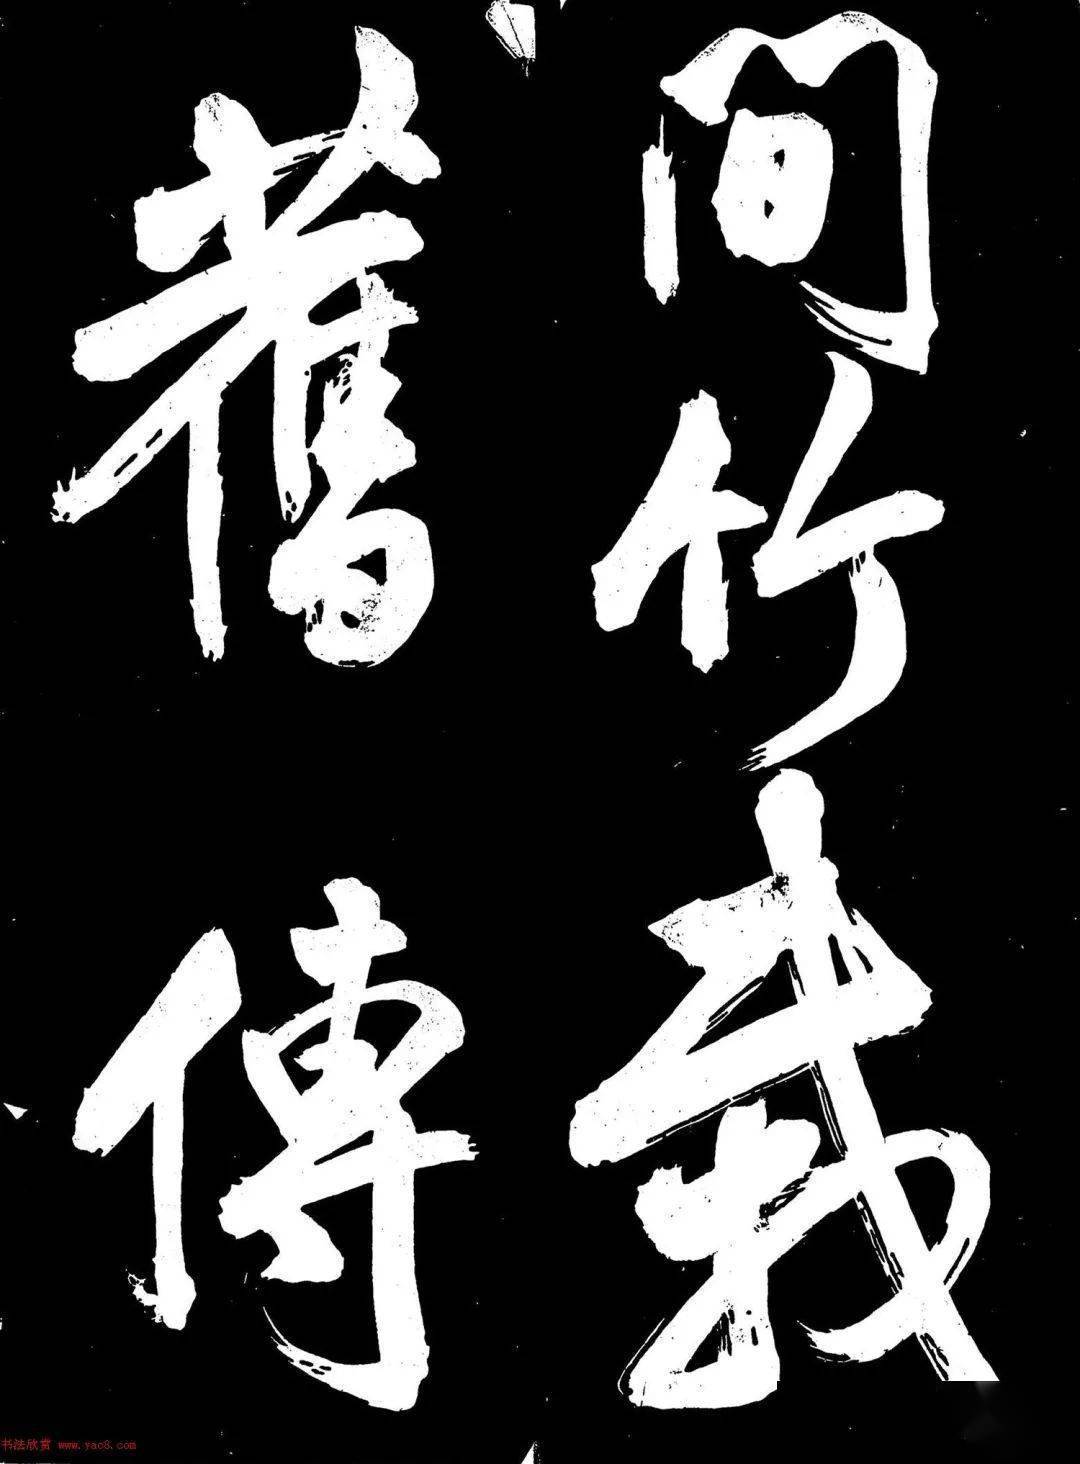 間竹栽
舊傳
书法欣赏 www.yac8.com